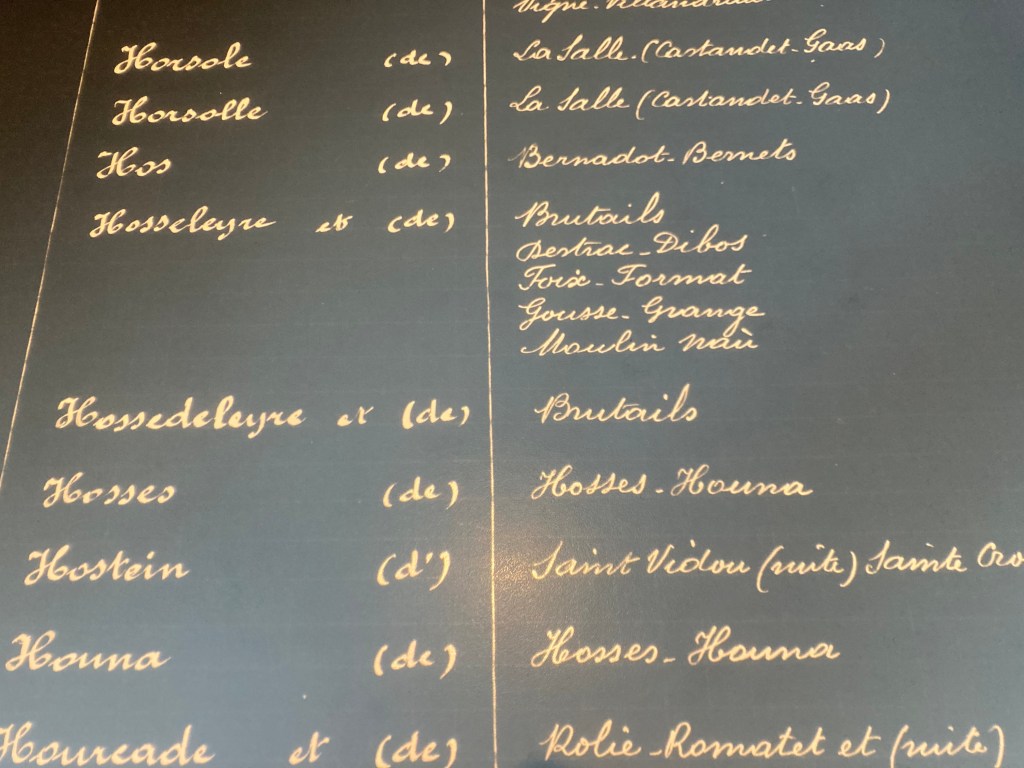 Horsole (de) La Salle. (Castandet-Gaas)
Horsolle (de) La Salle (Castandet-Gaas)
Hos (de) Bernadot-Bernets
Hosseleyre et (de) Brutails
Destrac-Dibos
Foix-Format
Gousse-Grange
Moulin naù
Hossedeleyre et (de) Brutails
Hosses (de) Hosses-Houna
Hostein (d') Saint Vidou (suite) Sainte
Houna (de) Hosses-Houna
Hourcade et (de) Rolie-Romatet et (suite)